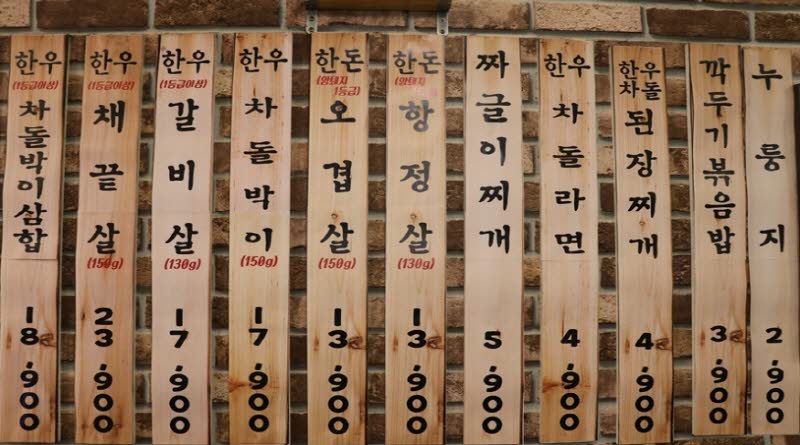 한우
(1등급이상)
차돌박이삼합
18,900
한우
(1등급이상)
채끝살
(150g)
23,900
한우
(1등급이상)
갈비살
(130g)
17,900
한우
차돌박이
(150g)
17,900
한돈
(암돼지
1등급)
오겹살
(150g)
13,900
한돈
(암돼지
1등급)
항정살
(130g)
13,900
짜글이찌개
5,900
한우
차돌라면
4,900
한우
차돌
된장찌개
4,900
깍두기볶음밥
3,900
누룽지
2,900